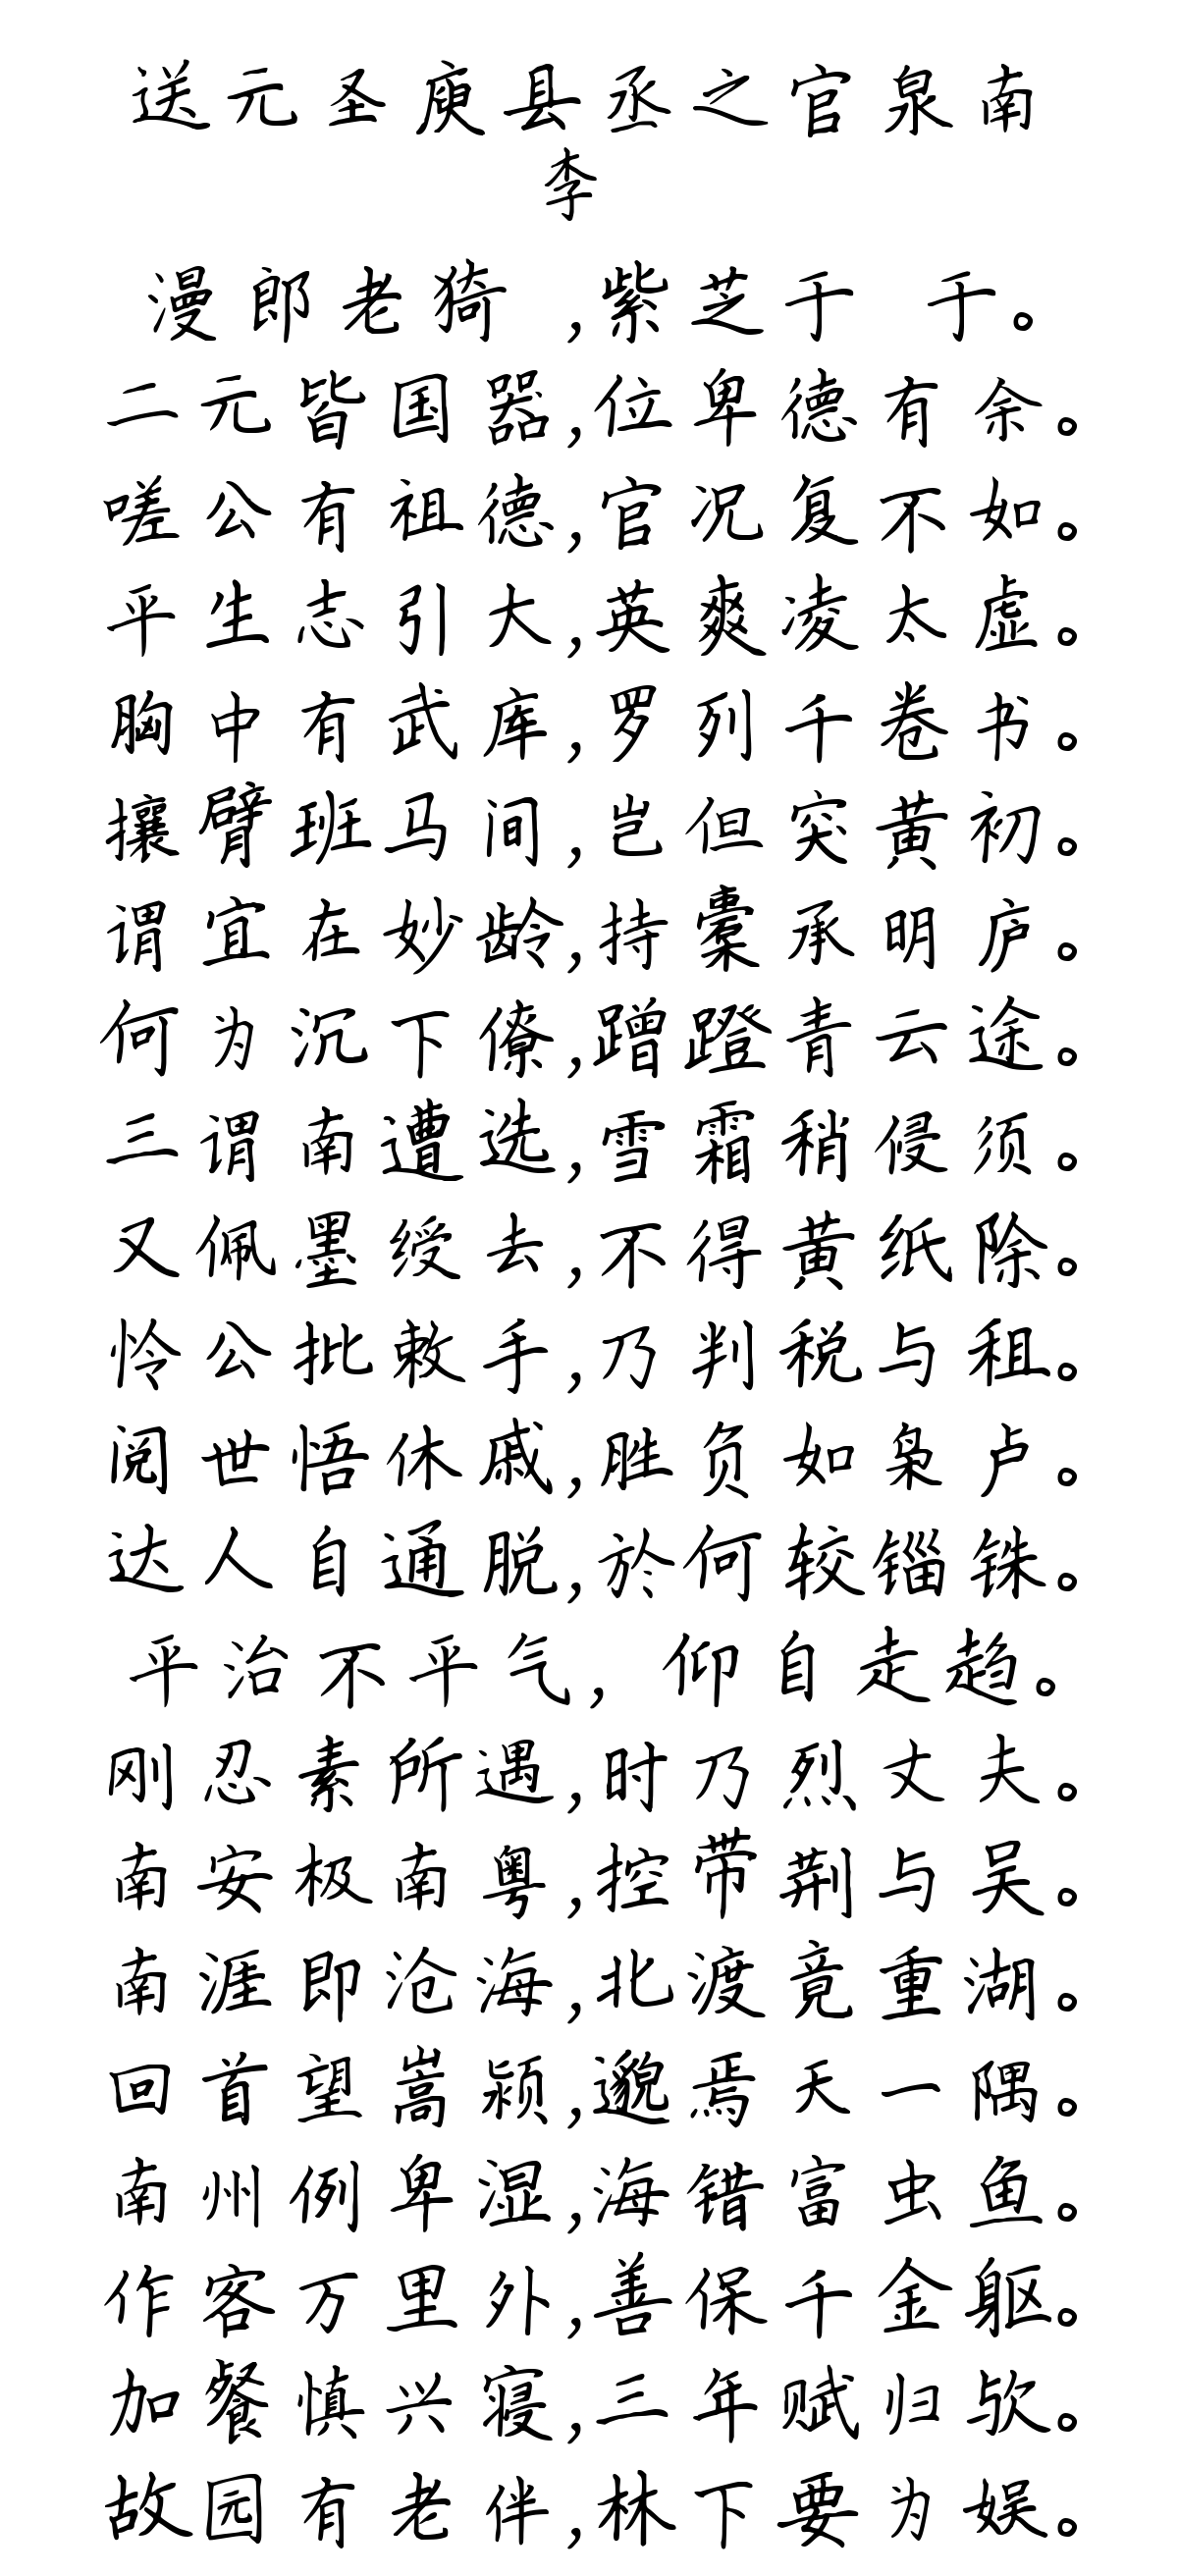 送元圣庾县丞之官泉南
李
漫郎老猗,紫芝于 于。
二元皆国器,位卑德有余。
嗟公有祖德,官况复不如。
平生志引大,英爽凌太虚。
胸中有武库,罗列千卷书。
攘臂班马间,岂但突黄初。
谓宜在妙龄,持橐承明庐。
何为沉下僚,蹭蹬青云途。
三谓南遭选,雪霜稍侵须。
又佩墨绶去,不得黄纸除。
怜公批敕手,乃判税与租。
阅世悟休戚,胜负如枭卢。
达人自通脱,於何较锱铢。
平治不平气, 仰自走趋。
刚忍素所遇,时乃烈丈夫。
南安极南粤,控带荆与吴。
南涯即沧海,北渡竟重湖。
回首望嵩颍,邈焉天一隅。
南州例卑湿,海错富虫鱼。
作客万里外,善保千金躯。
加餐慎兴寝,三年赋归欤。
故园有老伴,林下要为娱。